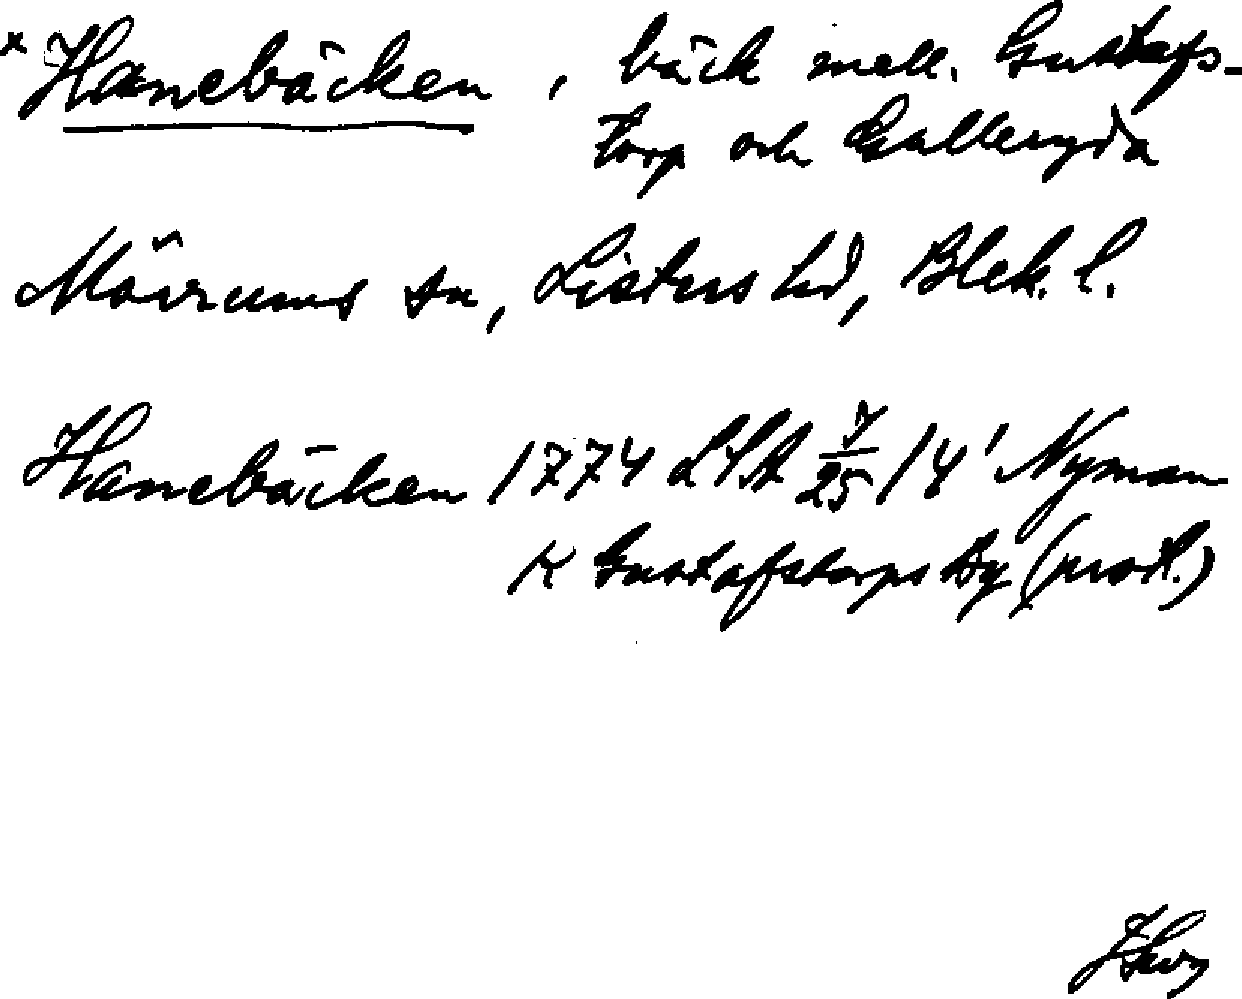 × Hanebäcken, bäck mell. Gustafs-
torp och Galleryda
Mörrums sn, Listers hd, Blek. l.
Hanebäcken 1774 LSA 7/25 /8' Nyman
K Gustafstorps by (prot.)